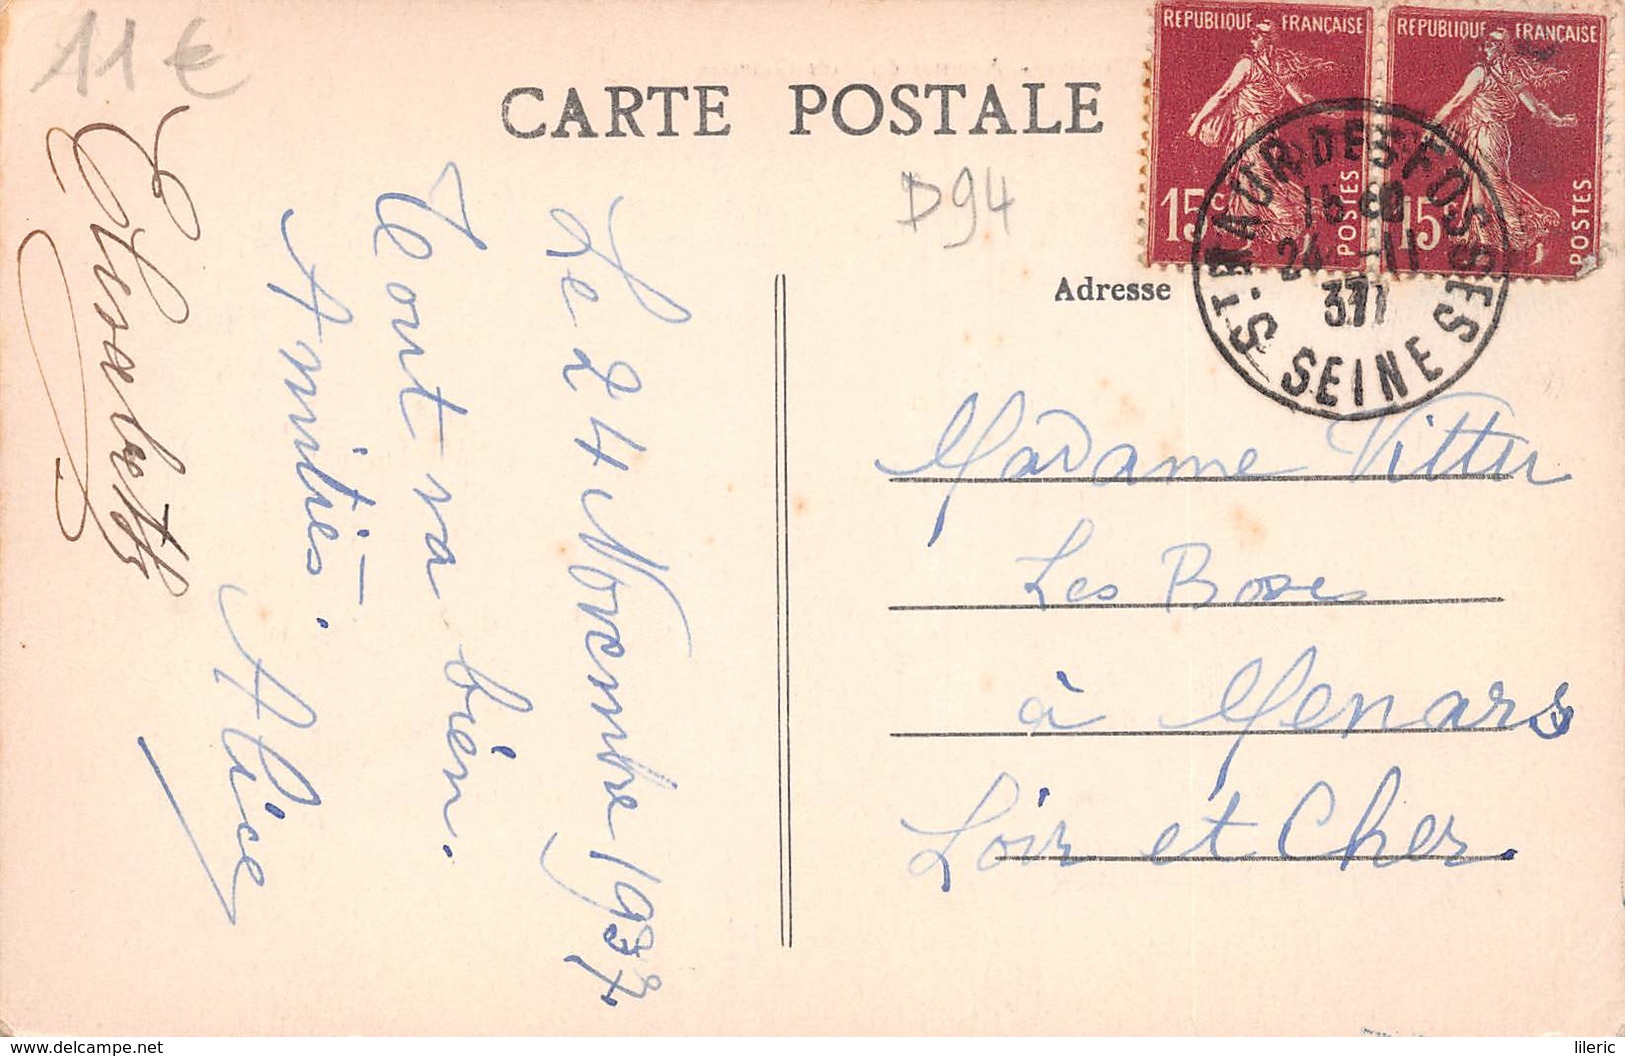 11€
CARTE POSTALE
D94
REPUBLIQUE FRANÇAISE
15c
POSTES
REPUBLIQUE FRANÇAISE
15c
POSTES
ST MAUR DES FOSSES
24 - 11
37
SEINE
Adresse
Le 24 Novembre 1937.
Tout va bien.
Amitiés.
Alice
Elissabeth
Madame Vitter
Les
à Menars
Loir et Cher.
delcampe.net
lileric